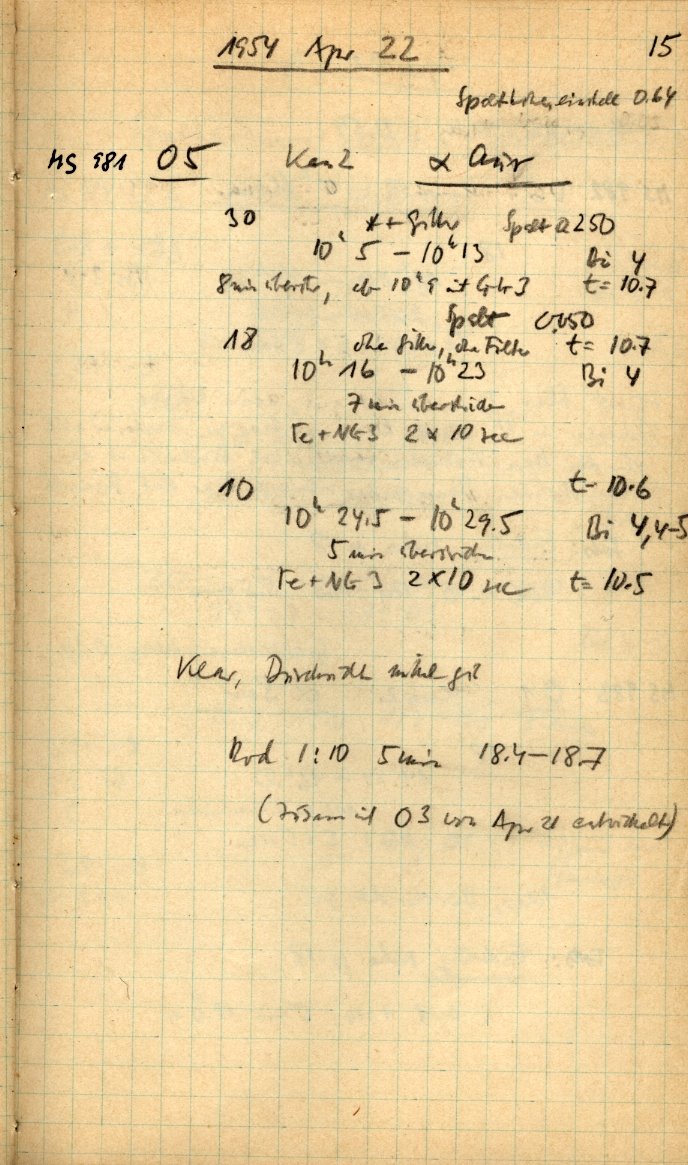 1954 Apr 22 15
Spalthöheneinstell 0.64
HS 981 05 Kam 2 α Aur
30 *+Gitter Spalt 0.250
10ʰ 5 – 10ʰ 13 Bi 4
8 min überstr, ab 10ʰ 9 mit t = 10.7
Spalt 0.050
18 ohne Gitter, ohne Filter t = 10.7
10ʰ 16 – 10ʰ 23 Bi 4
7 min überstrichen
Fe + NG 3 2 × 10 sec
10 t = 10.6
10ʰ 24.5 – 10ʰ 29.5 Bi 4,4-5
5 min überstrichen
Fe + NG 3 2 × 10 sec t = 10.5
Klar, Durchsicht mittel gut
Rod 1:10 5 min 18.4 – 18.7
(zusam mit 03 von Apr 21 entwickelt)